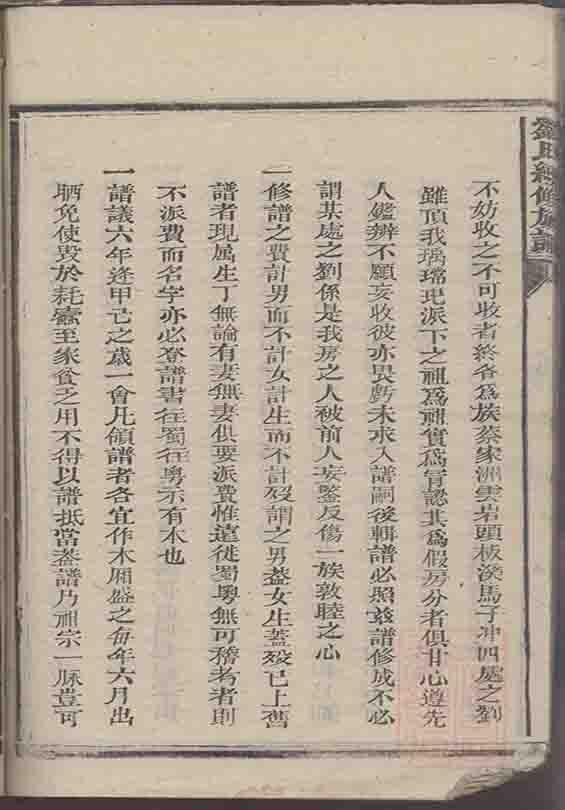 劉氏續修族譜
不妨收之不可收者終各為族蔡家洲雲岩頭板溪馬子冲四處之劉
雖頂我瑀瑺玘派下之祖為祖實為冐認其為假房分者俱甘心遵先
人鑑辨不願妄收彼亦畏虧未求入譜嗣後輯譜必照兹譜修成不必
謂某處之劉係是我房之人被前人妄鑒反傷一族敦睦之心
一修譜之費計男而不計女計生而不計歿謂之男葢女生蓋歿已上舊
譜者現属生丁無論有妻無妻俱要派費惟遠徙蜀粵無可稽考者則
不派費而名字亦必登譜書往蜀往粵示有木也
一譜議六年逢甲己之歲一會凡領譜者各宜作木厢盛之每年六月出
晒免使毀於耗蠧至家貧乏用不得以譜抵當葢譜乃祖宗一脉豈可